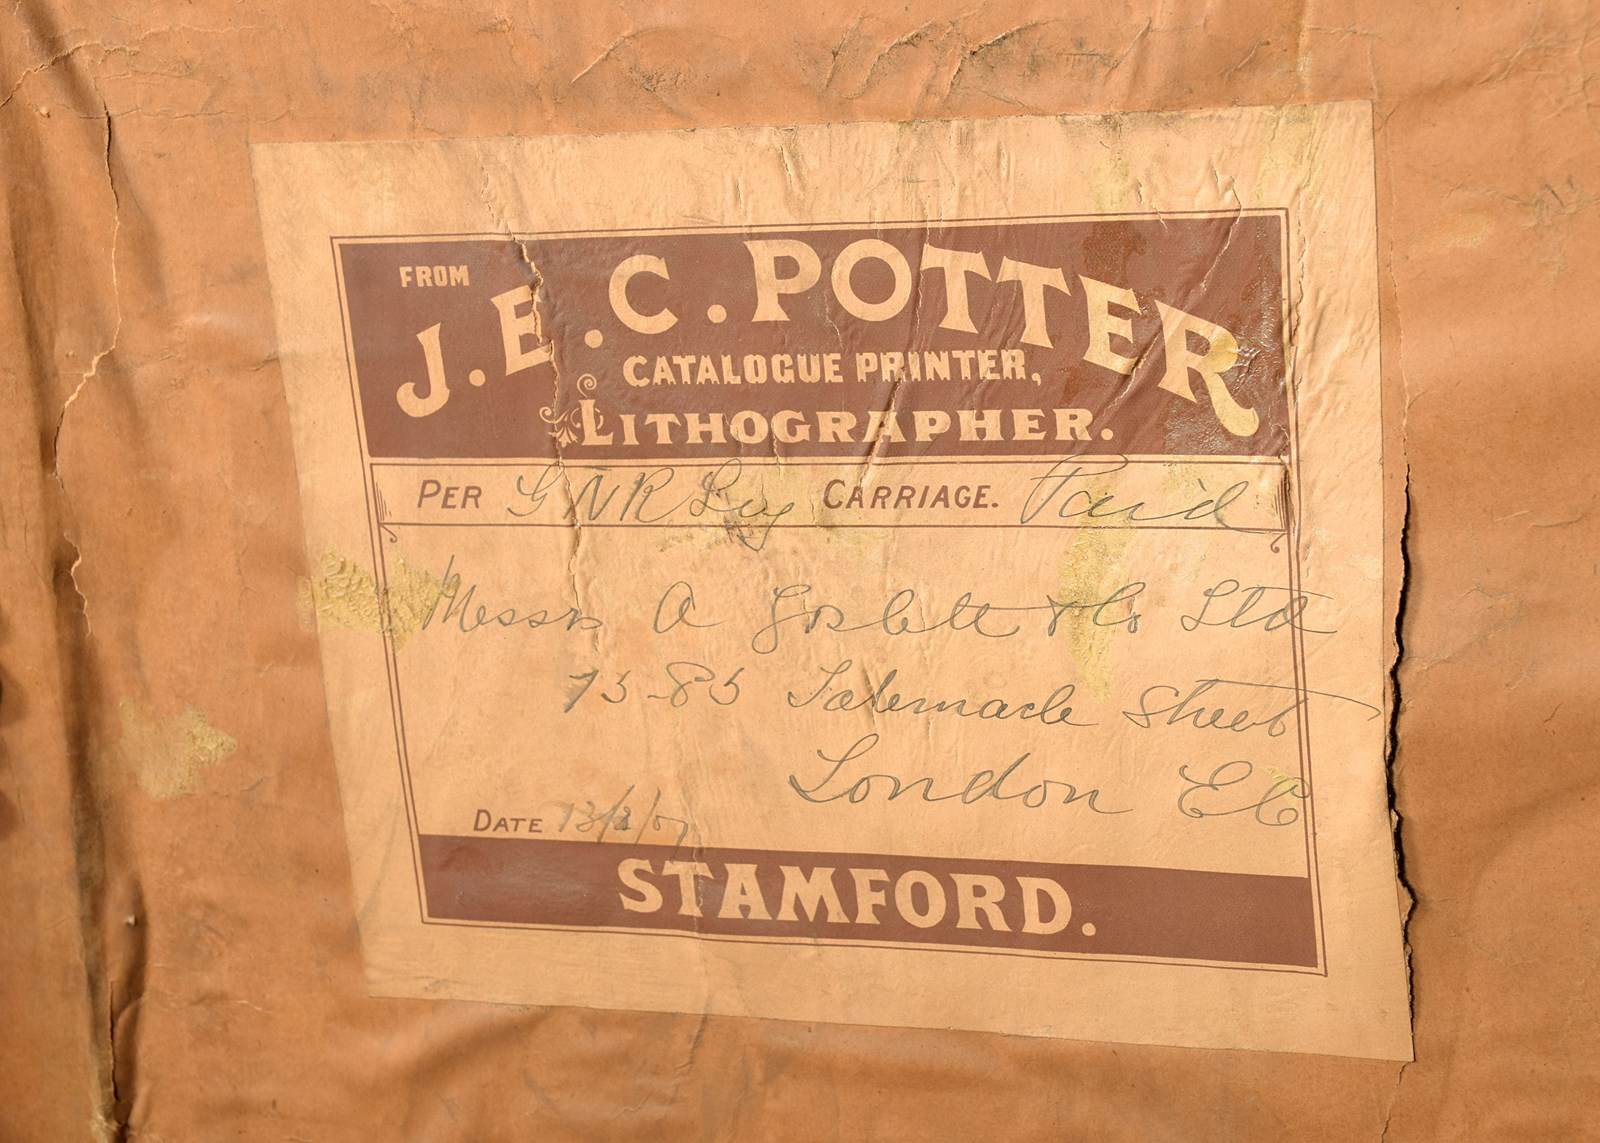 FROM
J. E. C. POTTER
CATALOGUE PRINTER,
LITHOGRAPHER.
PER G N R CARRIAGE. Paid
Messrs A Goslett & Co Ltd
75-85 Tabernacle Street
London EC
DATE 13/2/07
STAMFORD.